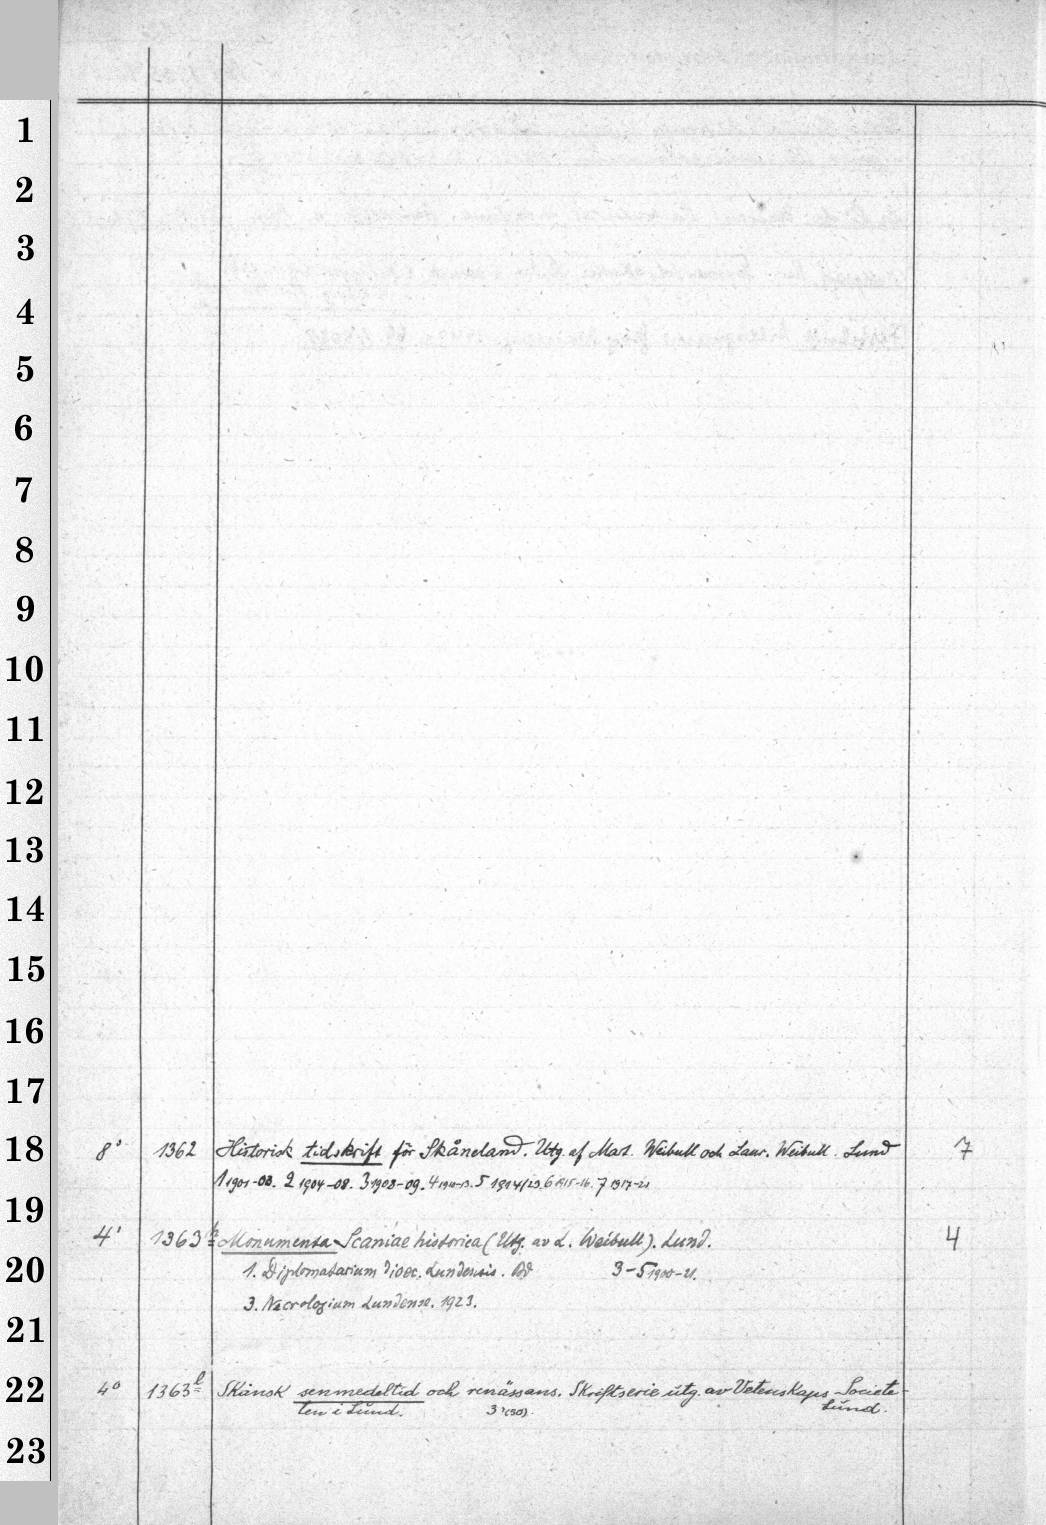 1
2
3
4
5
6
7
8
9
10
11
12
13
14
15
16
17
18
19
20
21
22
23
8° 1362 Historisk tidskrift för Skåneland. Utg. af Mart. Weibull och Laur. Weibull. Lund 7
1 1901-03. 2 1904-08. 3 1908-09. 4 1910-13. 5 1914/23. 6 1915-16. 7 1917-21
4° 1363 Monumenta Scaniae historica (Utg. av L. Weibull). Lund. 4
1. Diplomatarium dioec. Lundensis. Bd 3-5 1900-21.
3. Necrologium Lundense. 1923.
4° 1363 l Skånsk senmedeltid och renässans. Skriftserie utg. av Vetenskaps-Societe-
ten i Lund. 3 Lund.